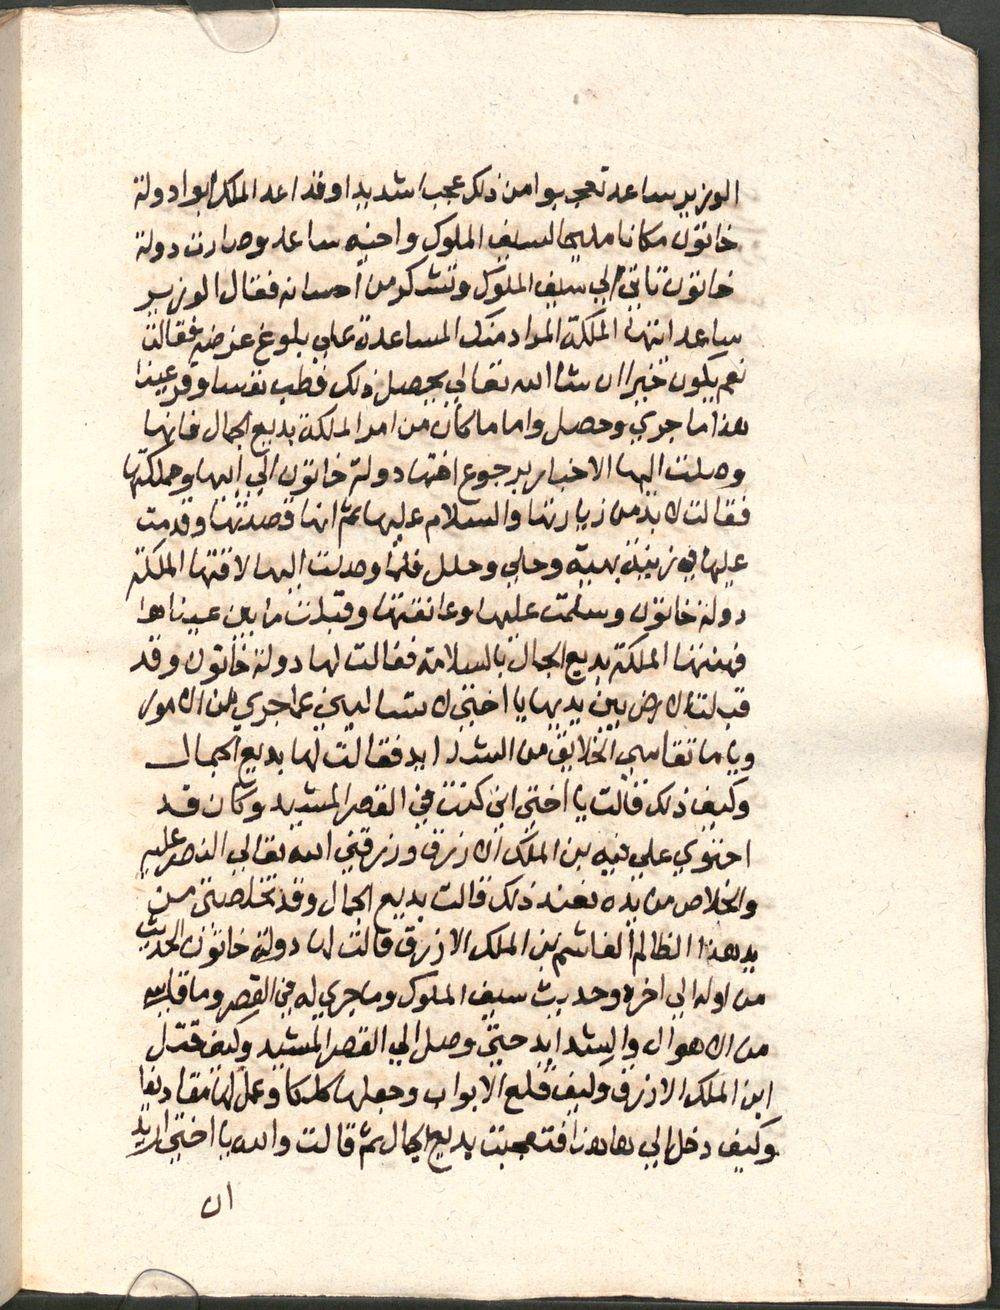 الوزير ساعد تعجبوا من ذلك عجبا شديدا وقد اعد الملك ابوا دولة
خاتون مكانا مليحا لسيف الملوك واخيه ساعد وصارت دولة
خاتون تاتي الي سيف الملوك وتشكر من احسانه فقال الوزير
ساعد ايتها الملكة المراد منك المساعدة علي بلوغ غرضه فقالت
نعم يكون خيرا ان شا الله تعالي يحصل ذلك فطب نفسا وقر عينا
هذا ما جري وحصل واما ما كان من امر الملكة بديع الجمال فانها
وصلت اليها الاخبار برجوع اختها دولة خاتون الي ابيها ومملكتها
فقالت لا بد من زيارتها والسلام عليها ثم انها قصدتها وقدمت
عليها في زينة بهية وحلي وحلل فلما وصلت اليها لاقتها الملكة
دولة خاتون وسلمت عليها وعانقتها وقبلت ما بين عيناها
فهنتها الملكة بديع الجمال بالسلامة فقالت لها دولة خاتون وقد
قبلت الارض بين يديها يا اختي لا تساليني عما جري من الامور
ويا ما تقاسي الخلايق من الشدايد فقالت لها بديع الجمال
وكيف ذلك قالت يا اختي اني كنت في القصر المشيد وكان قد
احتوي علي فيه بن الملك الازرق ورزقني الله تعالي النصر عليه
والخلاص من يده فعند ذلك قالت بديع الجمال وقد تخلصتي من
يد هذا الظالم الغاشم بن الملك الازرق قالت لها دولة خاتون الحديث
من اوله الي اخره وحديث سيف الملوك وما جري له في القصر وما قاساه
من الاهوال والشدايد حتي وصل الي القصر المشيد وكيف قتل
ابن الملك الازرق وكيف قلع الابواب وجعلها كلكا وعمل لها مقاديفا
وكيف دخل الي هاهنا فتعجبت بديع الجمال ثم قالت والله يا اختي اريد
ان